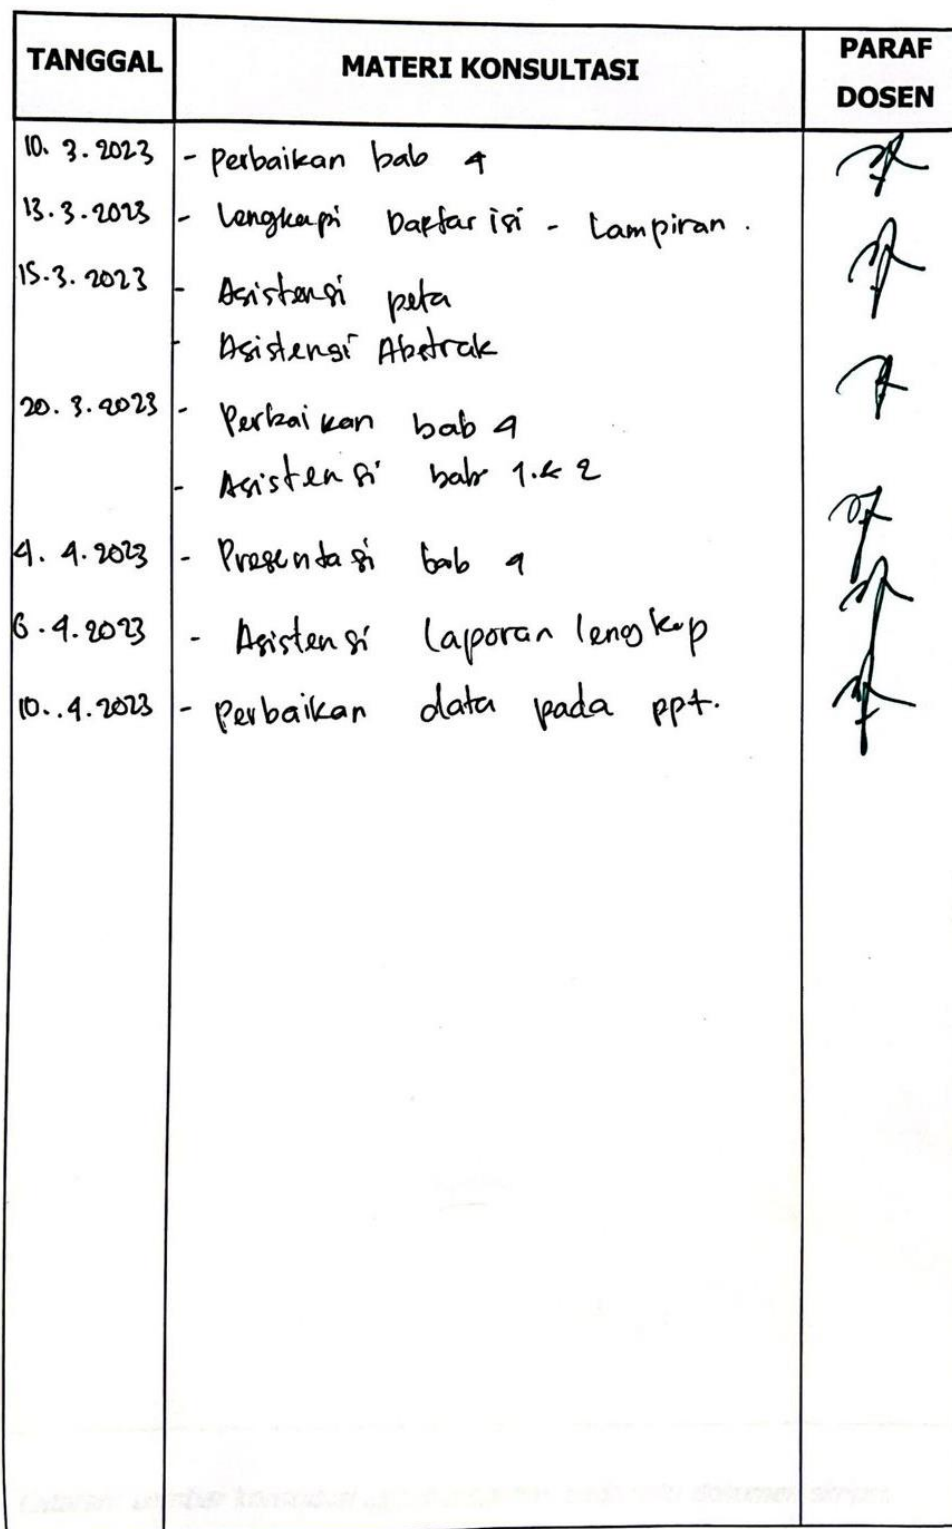 TANGGAL MATERI KONSULTASI PARAF DOSEN
10. 3. 2023 - Perbaikan bab 4
13. 3. 2023 - Lengkapi Daftar isi - Lampiran.
15. 3. 2023 - Asistensi peta
- Asistensi Abstrak
20. 3. 2023 - Perbaikan bab 4
- Asistensi bab 1. & 2
4. 4. 2023 - Presentasi bab 4
6. 4. 2023 - Asistensi laporan lengkap
10. 4. 2023 - Perbaikan data pada ppt.